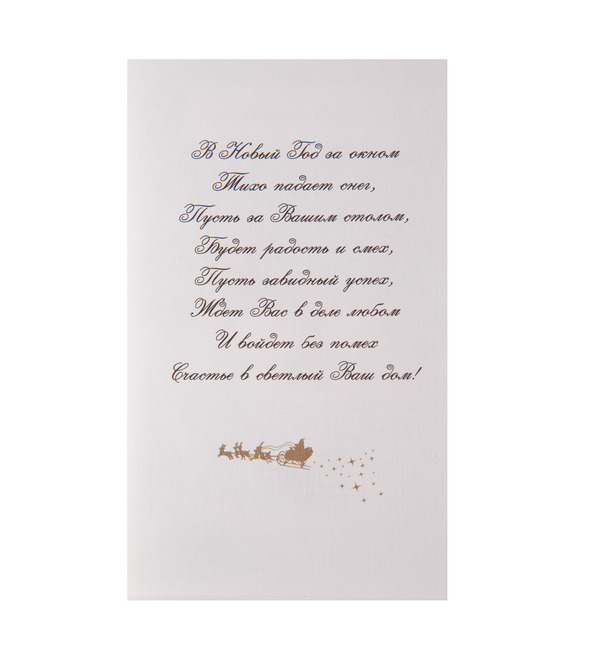 В Новый Год за окном
Тихо падает снег,
Пусть за Вашим столом,
Будет радость и смех,
Пусть завидный успех,
Ждет Вас в деле любом
И войдет без помех
Счастье в светлый Ваш дом!